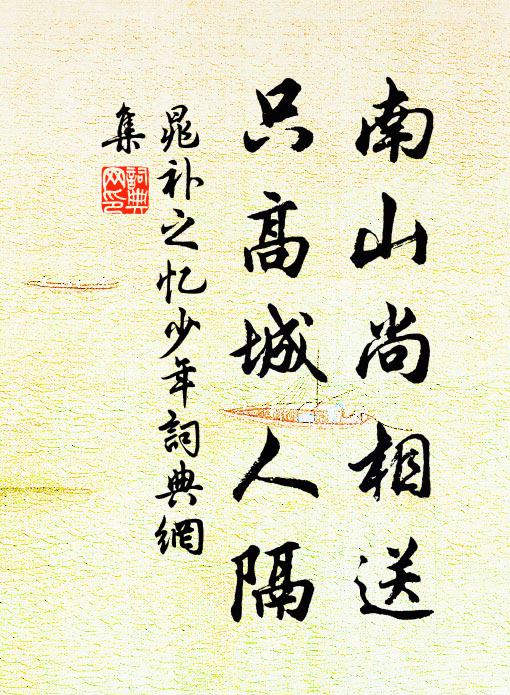 南山尚相送
只高城人隔
晁补之忆少年詞典網
集
詞典
网印